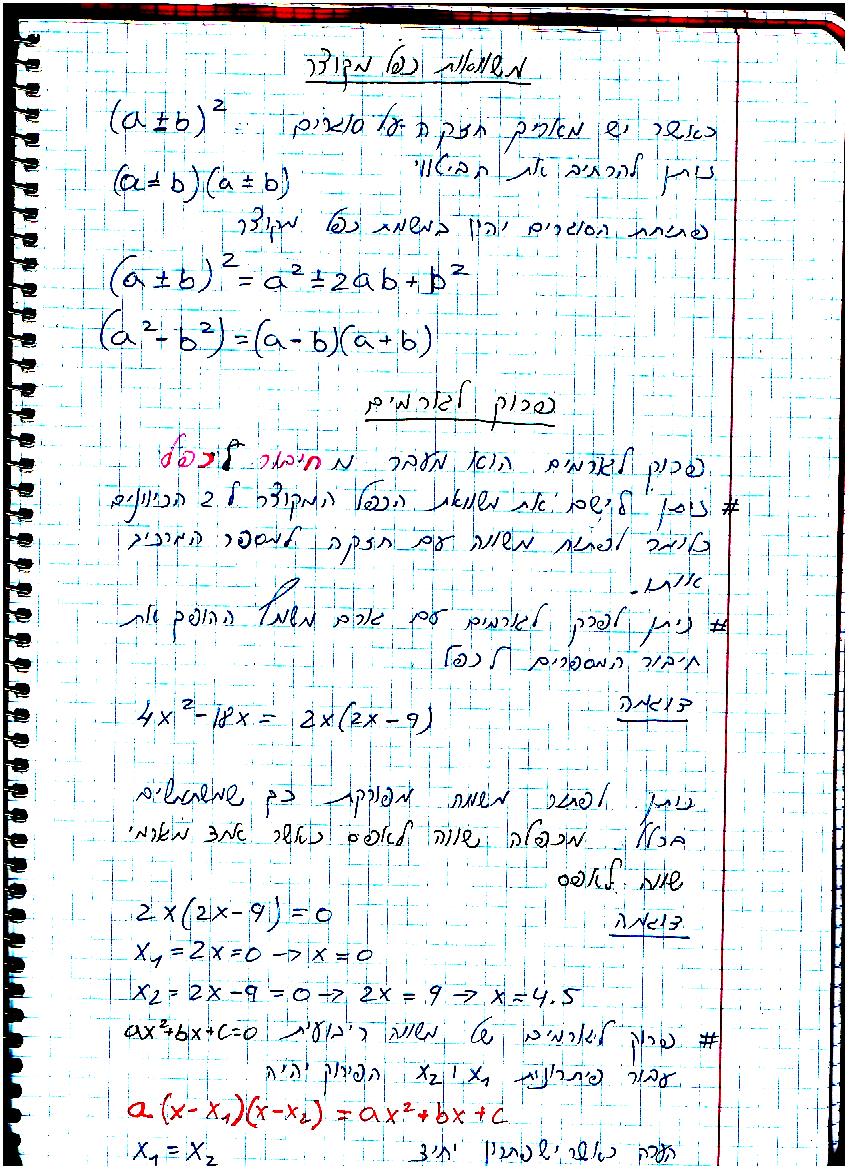 משוואות כפל מקוצר
כאשר יש מאריך חזקה על סוגרים (a±b)²
ניתן להרחיב את הביטוי
(a±b)(a±b)
פתיחת הסוגרים יהיו במשוואת כפל מקוצר
(a±b)² = a²±2ab+b²
(a²-b²)=(a-b)(a+b)
פרוק לגורמים
פרוק לגורמים הוא מעבר מ חיבור לכפל
# ניתן לישם את משוואת הכפל המקוצר ל 2 הכיוונים
כלומר לפתוח משוואה עם חזקה למספר המרכיב
אותו.
# ניתן לפרק לגורמים עם גורם משותף ההופך את
חיבור המספרים לכפל
דוגמה
4x²-18x = 2x(2x-9)
ניתן לפתור משוואה מפורקת כך שמשתמשים
בכלל מכפלה שווה לאפס כאשר אחד מגורמי
שווה לאפס
דוגמה
2x(2x-9)=0
x₁=2x=0→x=0
x₂=2x-9=0→2x=9→x=4.5
# פרוק לגורמים של משוואה ריבועית ax²+bx+c=0
עבור פיתרונות x₁ ו x₂ הפירוק יהיה
a(x-x₁)(x-x₂)=ax²+bx+c
הערה כאשר יש פתרון יחיד x₁=x₂